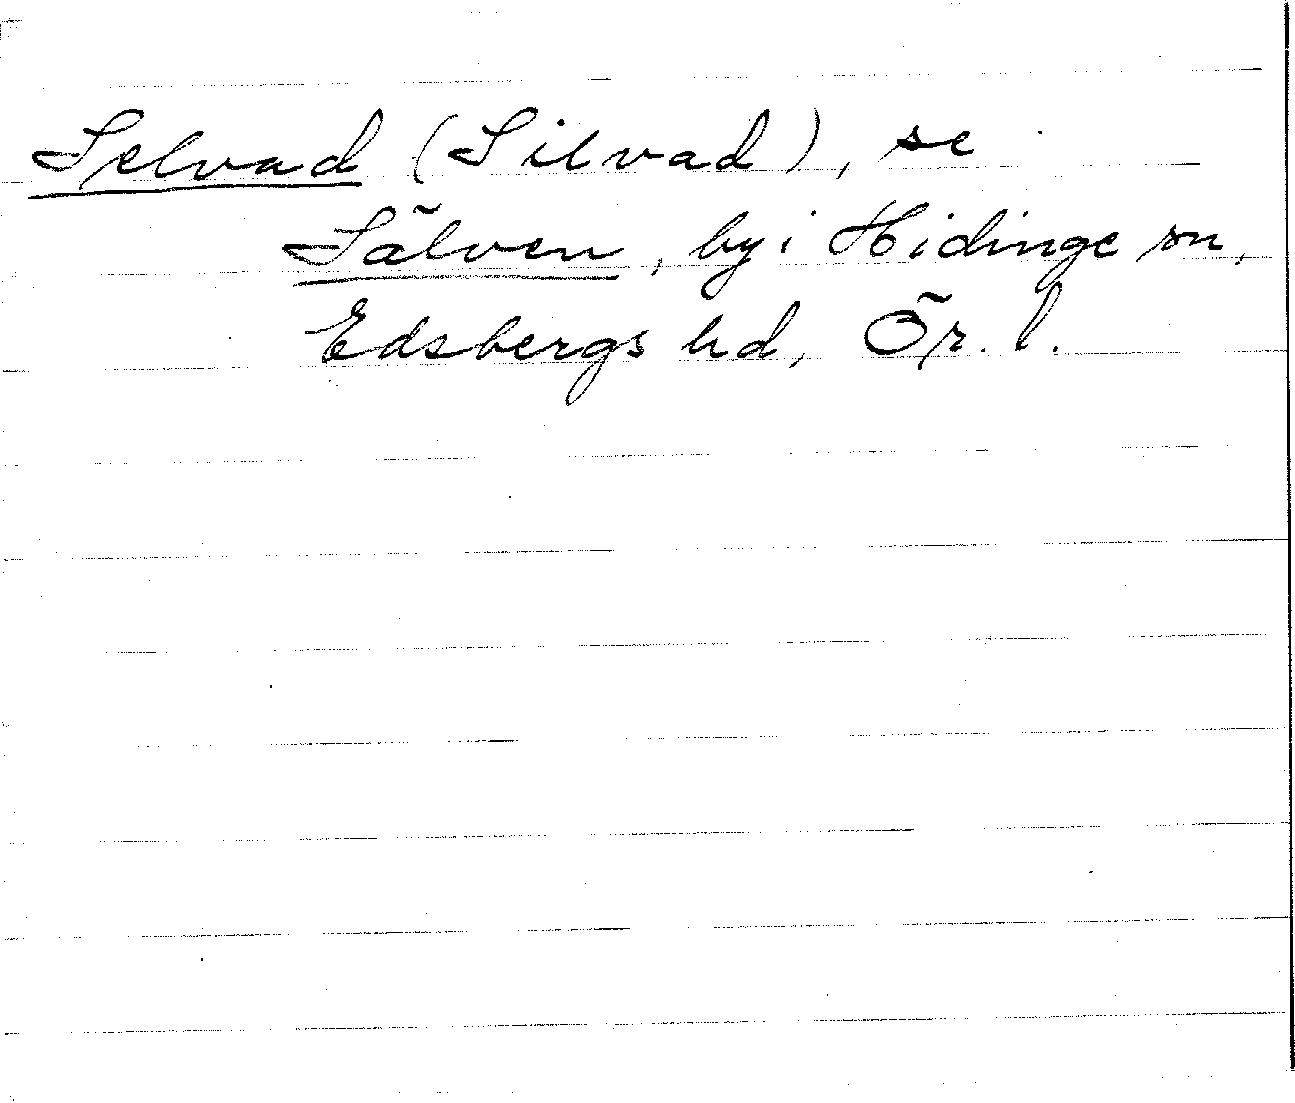 Selvad (Silvad), se
Sälven, by i Hidinge sn,
Edsbergs hd, Ör. l.